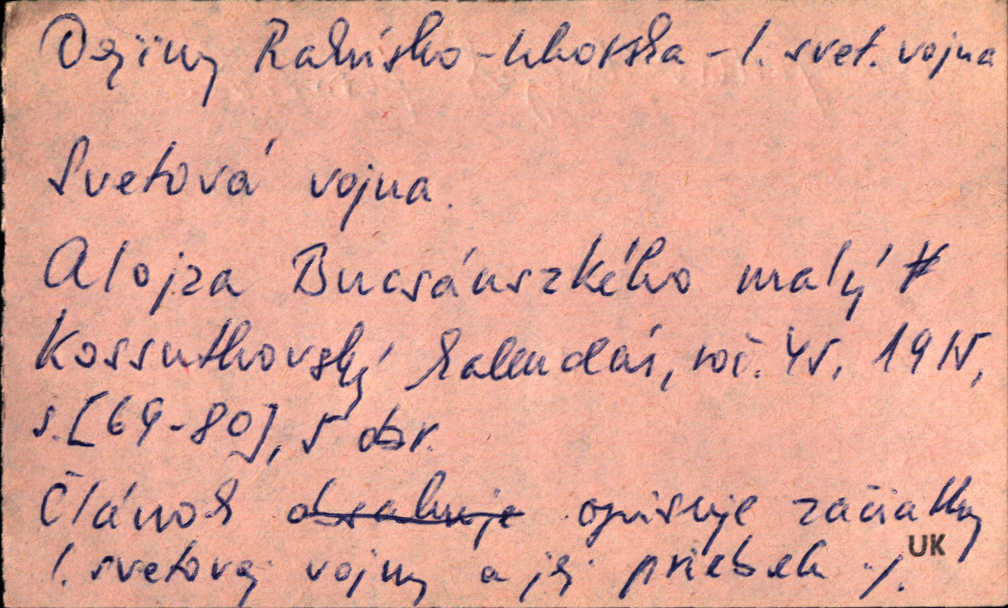 Dejiny Rakúsko-Uhorska - 1. svet. vojna
Svetová vojna.
Alojza Bucsánszkého malý
Kossuthovský kalendár, roč. 45, 1915,
s. [69-80], 5 obr.
Článok obsahuje opisuje začiatky
UK
1. svetovej vojny a jej priebeh ./.